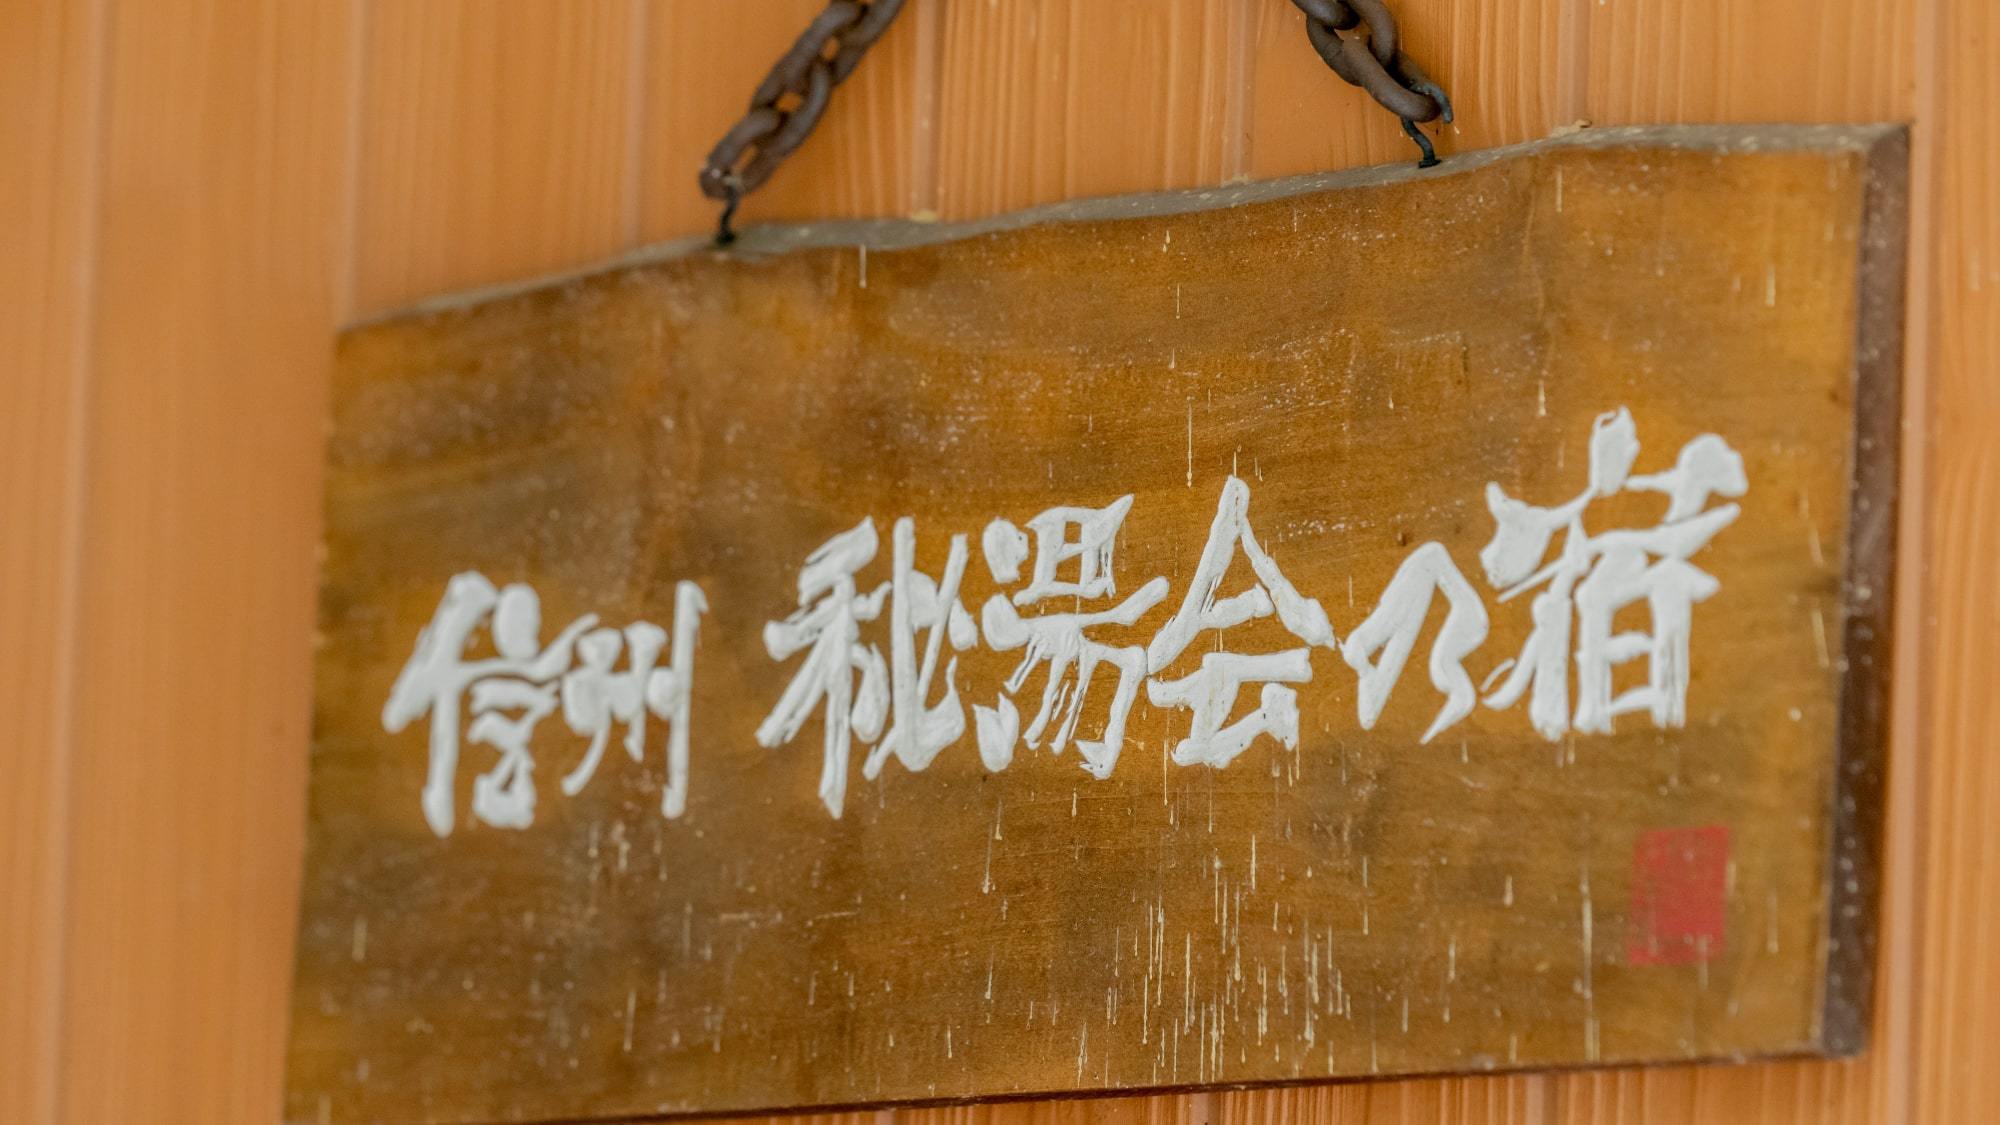 信州 秘湯会の宿